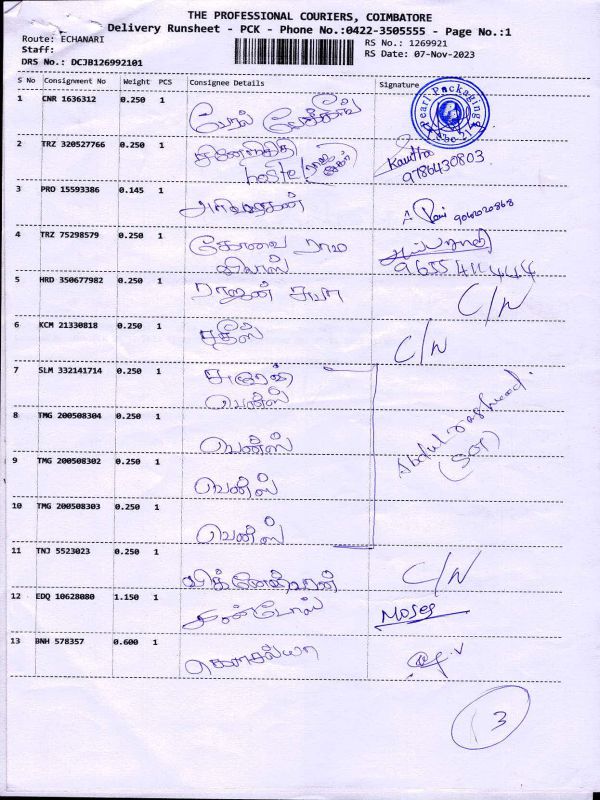 THE PROFESSIONAL COURIERS, COIMBATORE
Delivery Runsheet - PCK - Phone No.:0422-3505555 - Page No.:1
Route: ECHANARI
RS No.: 1269921
Staff:
RS Date: 07-Nov-2023
DRS No.: DCJB126992101
S No Consignment No Weight PCS Consignee Details Signature
1 CNR 1636312 0.250 1 பேரல்
Pearl Packaging
2 TRZ 320527766 0.250 1
hostel
Kavitha
9786430803
3 PRO 15593386 0.145 1
9042020868
4 TRZ 75298579 0.250 1 கோவை ராம
9655411444
5 HRD 350677982 0.250 1 ராஜன் சுபா C/N
6 KCM 21330818 0.250 1 சதீஸ் C/N
7 SLM 332141714 0.250 1
வெனீஸ்
8 TMG 200508304 0.250 1 வெனீஸ்
9 TMG 200508302 0.250 1 வெனீஸ்
10 TMG 200508303 0.250 1 வெனீஸ்
11 TNJ 5523023 0.250 1 C/N
12 EDQ 10628080 1.150 1 Moses
13 BNH 578357 0.600 1 கௌசல்யா
3